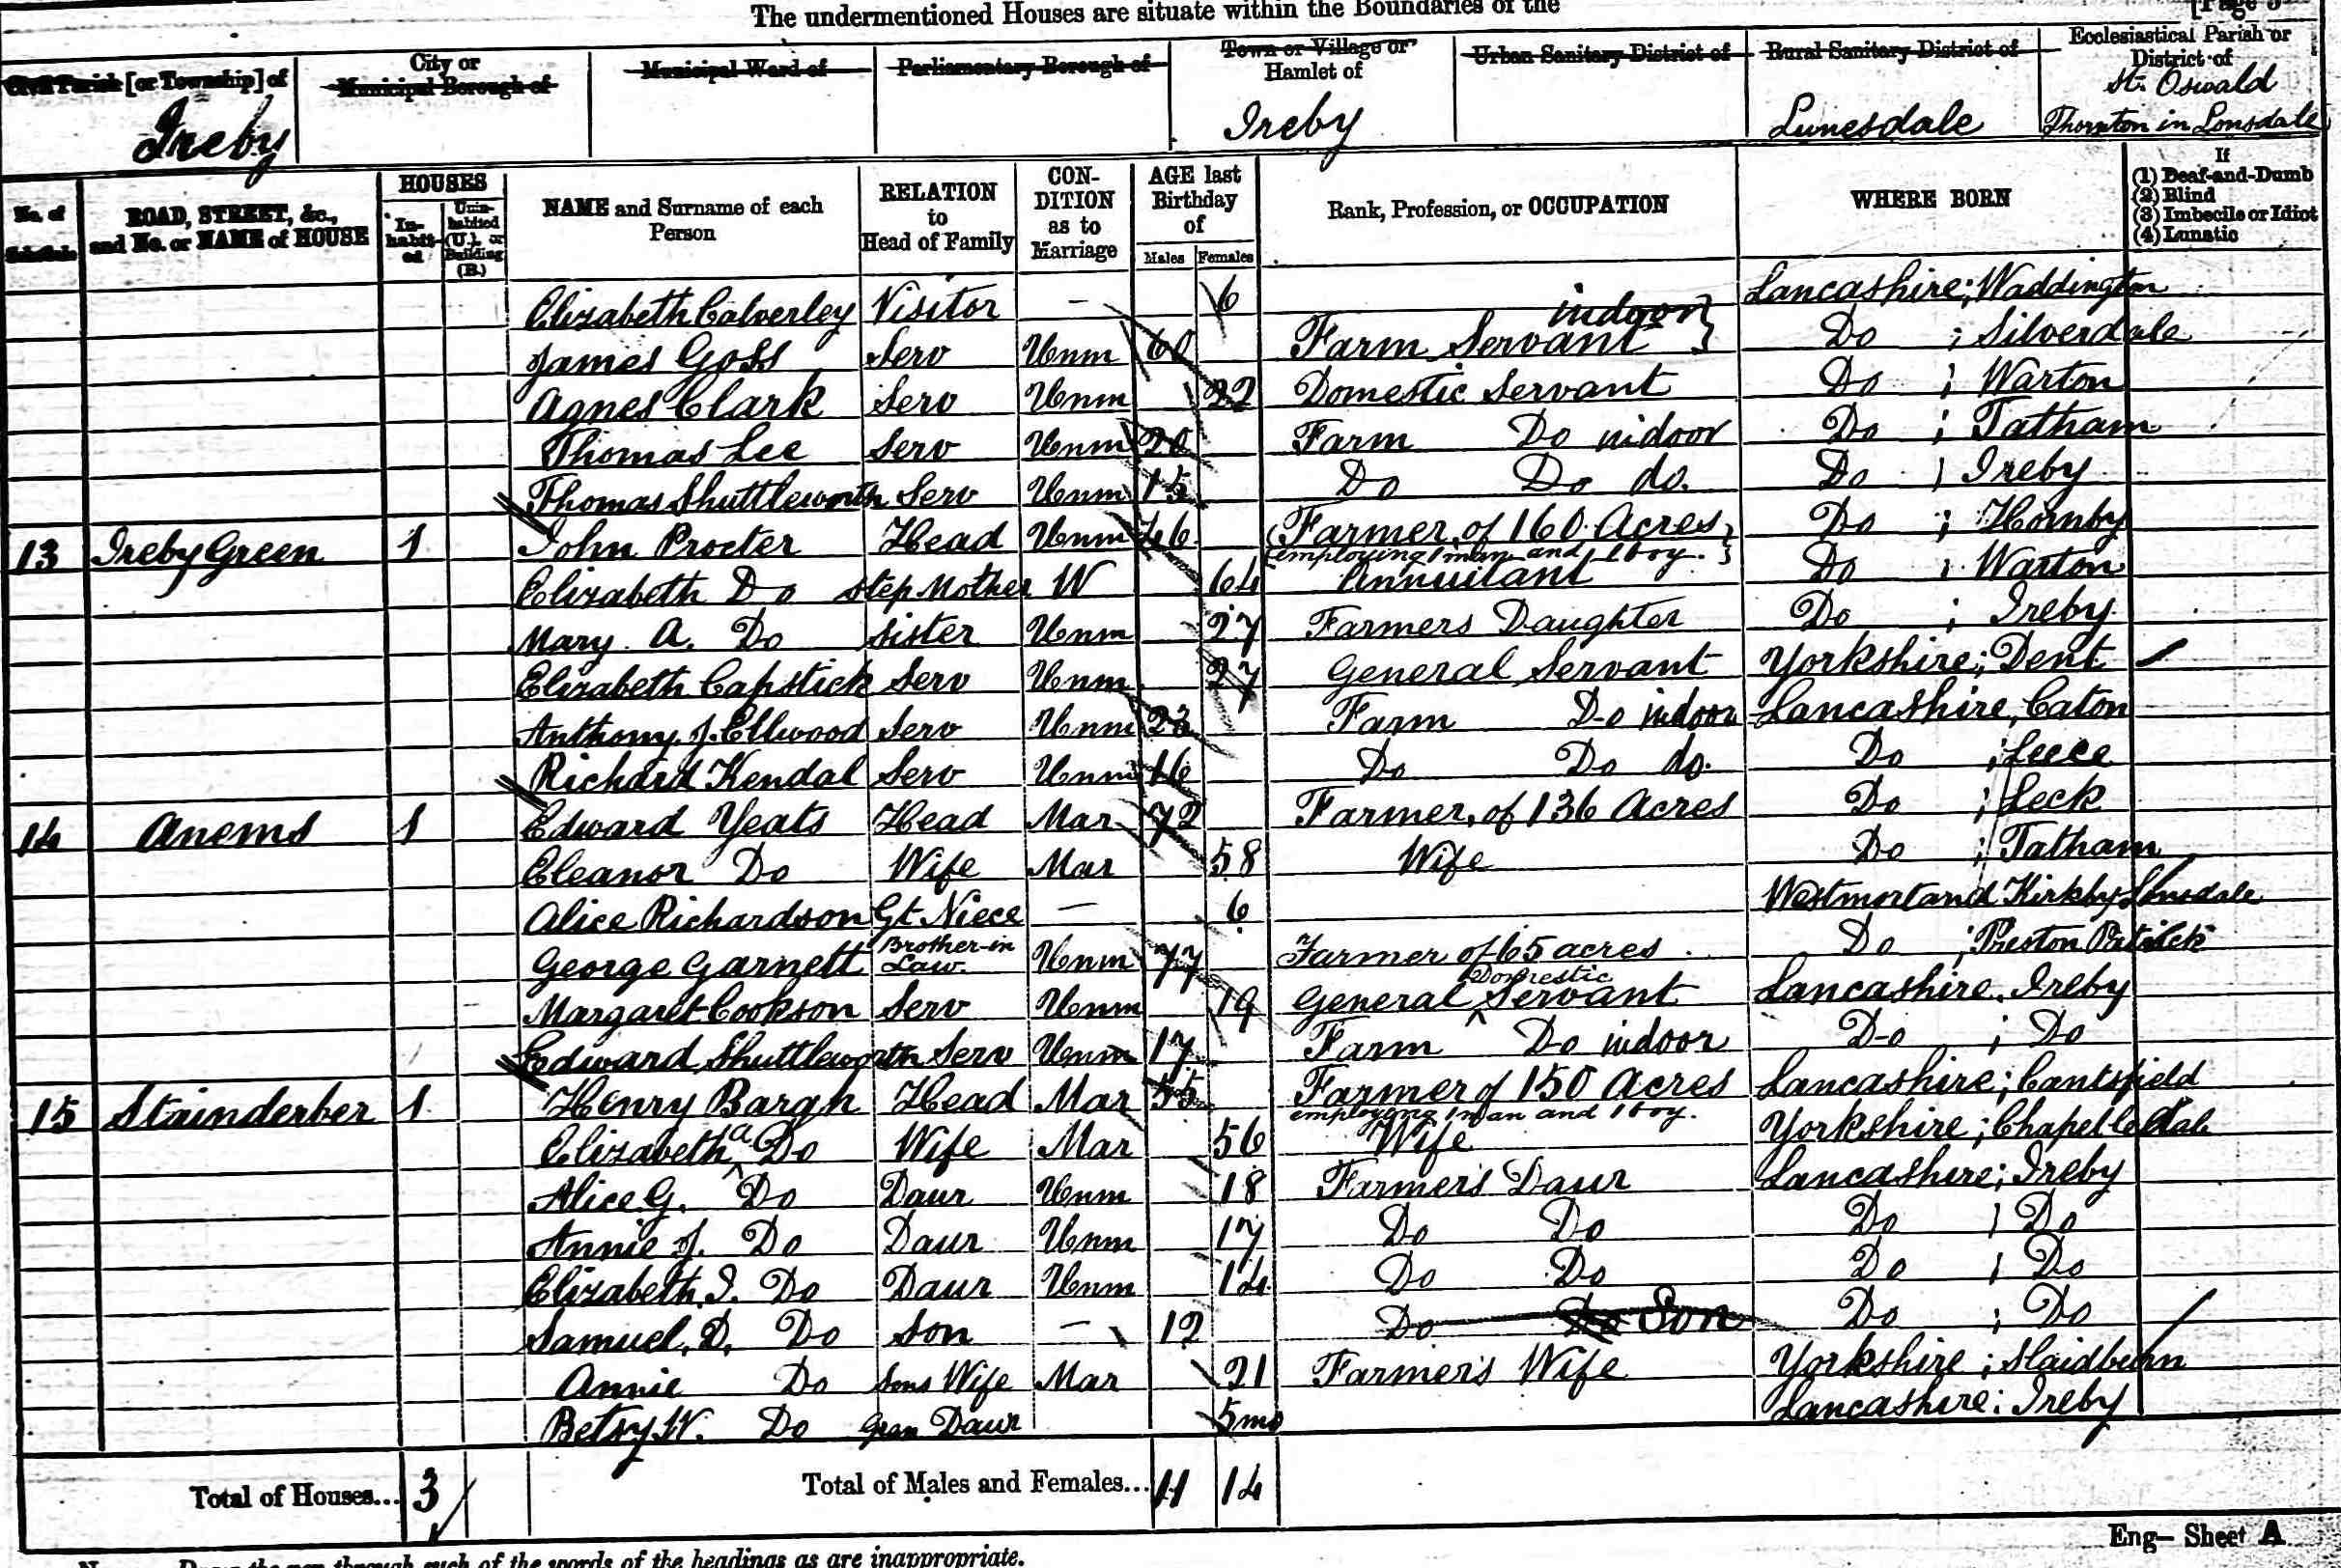 The undermentioned Houses are situate within the Boundaries of the
[Page 5
Civil Parish [or Township] of
Ireby
City or
Municipal Borough of
Municipal Ward of
Parliamentary Borough of
Town or Village or
Hamlet of
Ireby
Urban Sanitary District of
Rural Sanitary District of
Lunesdale
Ecclesiastical Parish or
District of
St. Oswald
Thornton in Lonsdale
No. of
Schedule
ROAD, STREET, &c.,
and No. or NAME of HOUSE
HOUSES
In-
habit-
ed
Unin-
habited
(U.), or
Building
(B.)
NAME and Surname of each
Person
RELATION
to
Head of Family
CON-
DITION
as to
Marriage
AGE last
Birthday
of
Males Females
Rank, Profession, or OCCUPATION
WHERE BORN
If
(1) Deaf-and-Dumb
(2) Blind
(3) Imbecile or Idiot
(4) Lunatic
Elizabeth Calverley Visitor — 6 Lancashire; Waddington
James Goss Serv Unm 60 Farm Servant indoor } Do ; Silverdale
Agnes Clark Serv Unm 22 Domestic Servant Do ; Warton
Thomas Lee Serv Unm 20 Farm Do indoor Do ; Tatham
Thomas Shuttleworth Serv Unm 15 Do Do do. Do ; Ireby
13 Ireby Green 1 John Procter Head Unm 46 (Farmer, of 160 Acres } Do ; Hornby
employing 1 man and 1 boy. }
Elizabeth Do Step Mother W 64 Annuitant Do ; Warton
Mary A. Do Sister Unm 27 Farmers Daughter Do ; Ireby
Elizabeth Capstick Serv Unm 27 General Servant Yorkshire; Dent
Anthony J. Ellwood Serv Unm 23 Farm Do indoor Lancashire, Caton
Richard Kendal Serv Unm 16 Do Do do. Do ; Leece
14 Anems 1 Edward Yeats Head Mar 72 Farmer, of 136 Acres Do ; Leck
Eleanor Do Wife Mar 58 Wife Do ; Tatham
Alice Richardson Gt. Niece — 6 Westmorland Kirkby Lonsdale
George Garnett Brother-in Law. Unm 77 Farmer of 65 acres Do ; Preston Patrick
Margaret Cookson Serv Unm 19 General Domestic Servant Lancashire, Ireby
Edward Shuttleworth Serv Unm 17 Farm Do indoor Do ; Do
15 Stainderber 1 Henry Bargh Head Mar 55 Farmer of 150 Acres Lancashire; Cantsfield
employing 1 man and 1 boy.
Elizabeth a Do Wife Mar 56 Wife Yorkshire; Chapel le dale
Alice G. Do Daur Unm 18 Farmer's Daur Lancashire; Ireby
Annie J. Do Daur Unm 17 Do Do Do ; Do
Elizabeth I. Do Daur Unm 14 Do Do Do ; Do
Samuel, D, Do Son — 12 Do Do Son Do ; Do
Annie Do Sons Wife Mar 21 Farmer's Wife Yorkshire; Slaidburn
Betsy W. Do Gran Daur 5mo Lancashire: Ireby
Total of Houses... 3
Total of Males and Females... 11 14
Eng— Sheet A
through such of the words of the headings as are inappropriate.